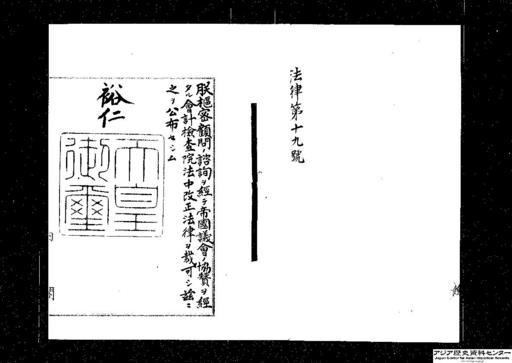 法律第十九號
朕樞密顧問ノ諮詢ヲ經テ帝國議會ノ協贊ヲ經
タル會計檢査院法中改正法律ヲ裁可シ茲ニ
之ヲ公布セシム
裕仁
天皇
御璽
内
閣
アジア歴史資料センター
Japan Center for Asian Historical Records